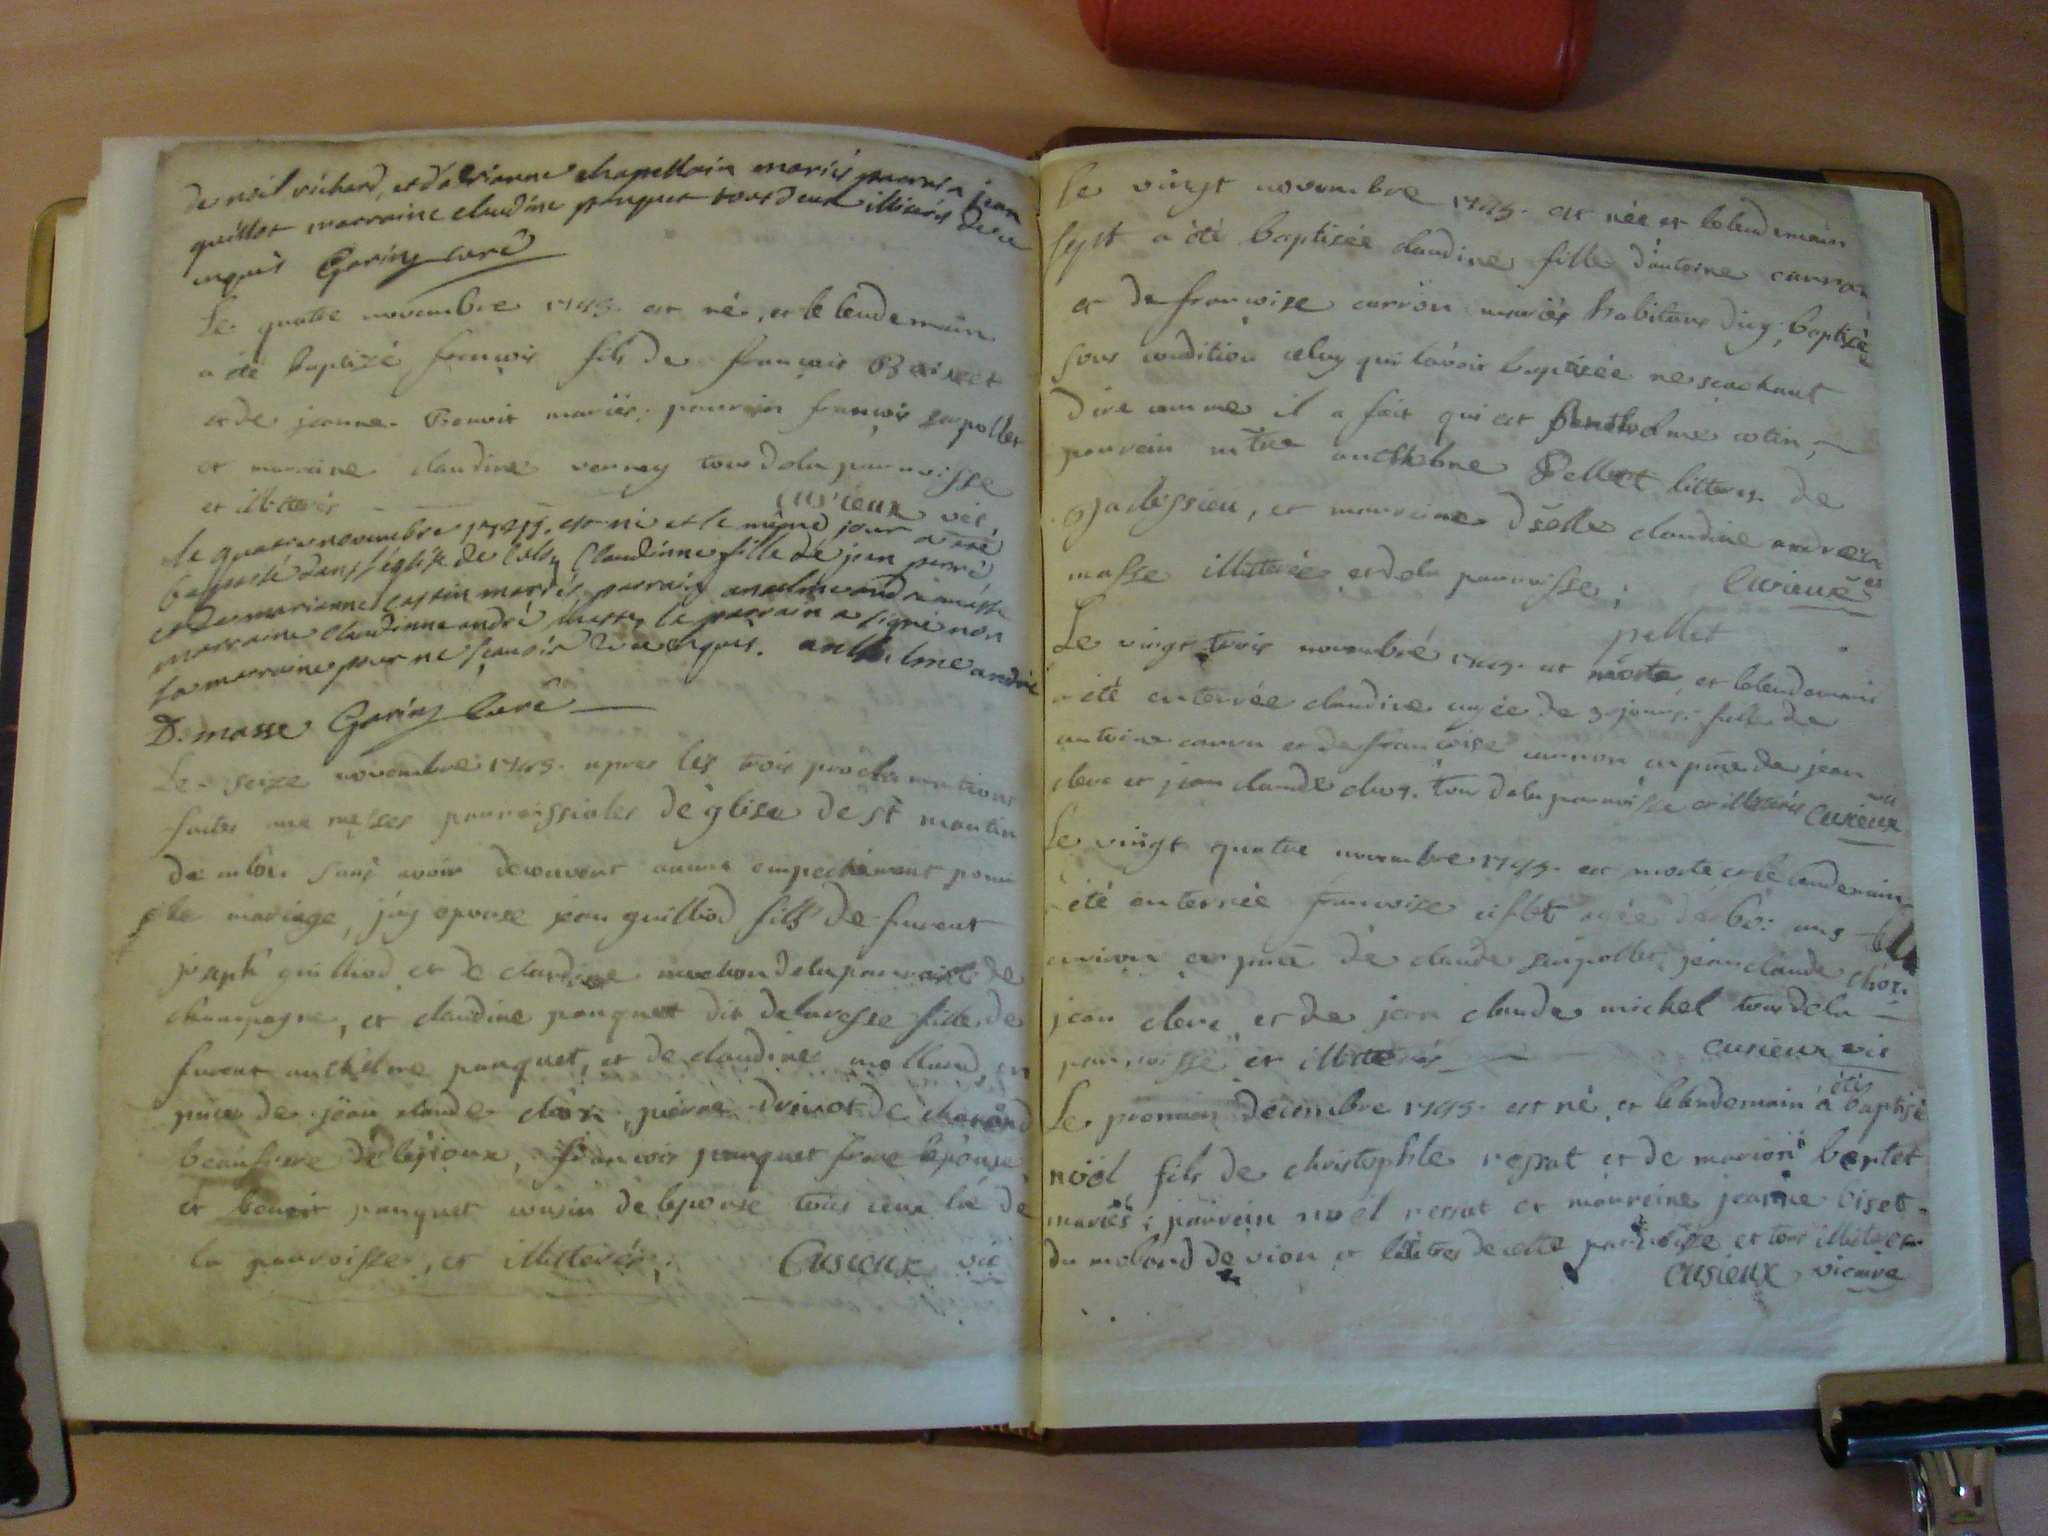 de noel richard, et d'adrianne chapellain mariés parrain jean
guillot marraine claudine panquet tous deux illiterés de ce
enquis Garin curé
Le quatre novembre 1745. est né, et le lendemain
a été baptizé françois fils de françois
et de jeanne Benoit mariés; parrain françois surpollet
et marraine claudine verney tous de la parroisse
et illiterés Cusieux vic.
le quatre novembre 1745. est né et le même jour a été
baptisé dans l'église de Claudinne fille de jean
et de marianne mariés parrain anselme andré masse
marraine Claudinne andré masse, le parrain a signé non
la marraine pour ne sçavoir de ce enquis. anthelme andré
D. masse Garin curé
Le seize novembre 1745. apres les trois proclamations
faites aux messes parroissiales de l'église de St martin
de sans avoir decouvert aucun empechement pour
le mariage, j'ay epousé jean guilliod fils de furent
joseph guilliod et de claudine de la parroisse de
champagne, et claudine panquet dit fille de
furent anthelme panquet, et de claudine mollard, en
pnce de jean claude choz, pierre de
beaufrere de l'epoux, françois panquet frere l'épouse
et benoit panquet cousin de l'epouse tous ceux là de
la parroisse, et illiterés; Cusieux vic
Le vingt novembre 1745. est née et le lendemain
a été baptisée claudine fille d'antoine carron
et de françoise carron mariés habitans d'icy; baptisée
sous condition celuy qui l'avoit baptisée ne scachant
dire comme il a fait qui est Benthelme cotin,
parrain mtre anthelme Pellet litteré. de
et marraine dselle claudine andré
masse illiterée et de la parroisse; Cusieux
pellet
Le vingt trois novembre 1745. est morte, et le lendemain
a été enterrée claudine agée de 3 jours. fille de
antoine carron et de françoise carron en pnce de jean
clerc et jean claude choz. tous de la parroisse et illiterés Cusieux vic
Le vingt quatre novembre 1745. est morte et le lendemain
a été enterrée françoise agée de 60: ans
environ en pnce de claude surpollet, jean claude choz.
jean clerc et de jean claude michel tous de la
parroisse et illiterés cusieux vic
Le premier decembre 1745. est né, et le lendemain a été baptisé
noël fils de christophle ressat et de marion bertet
mariés; parrain noël ressat et marreine jeanne biset
du molard de vion et de cette parroisse et tous illiterés
cusieux vicaire